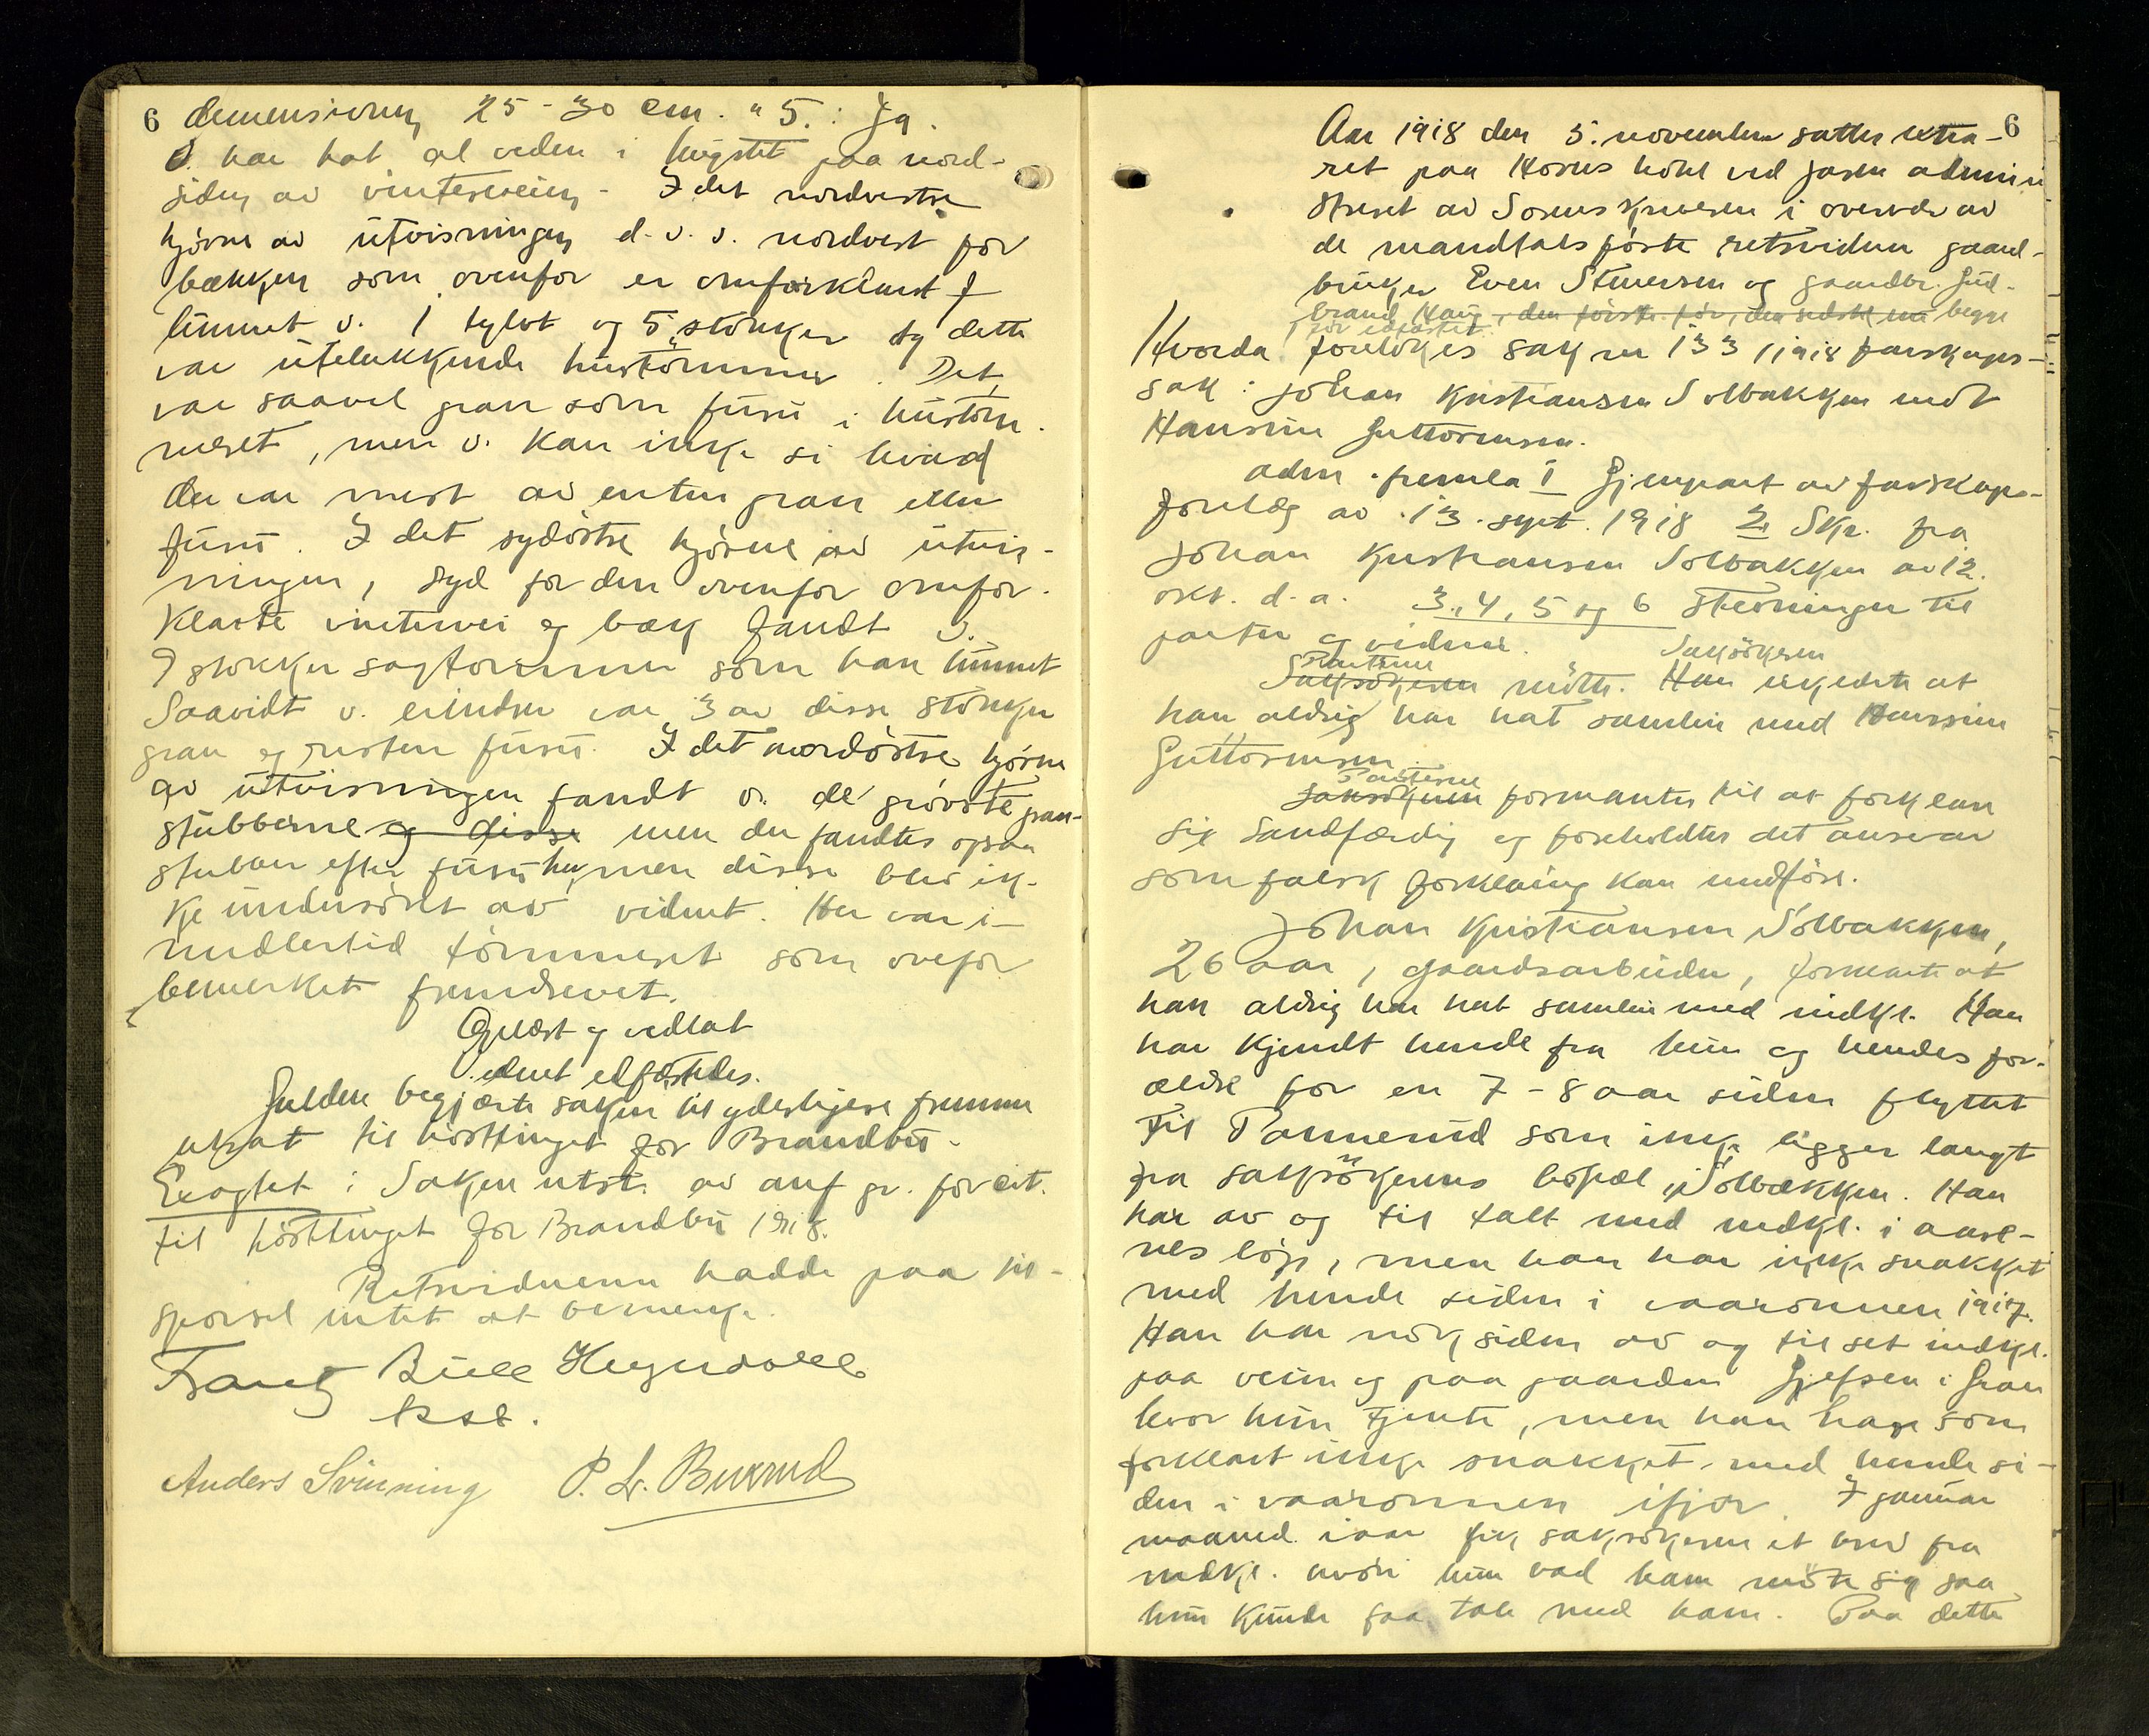 6
demensioner 25-30 cm. " 5. : Ja.
V. har hat al veden i hugstet paa nord-
siden av vinterveien - I det nordvestre
hjörne av utvisningen d.v.s. nordvest for
bækken som ovenfor er omforklart
finnet v. 1 tylvt og 5 stokker og dette
var utelukkende hustömmer. Det
var saavel gran som furu i hustöm-
meret, men v. kan ikke si hvad
der var mest av enten gran eller
furu. I det sydöstre hjörne av utvis-
ningen, syd for den ovenfor omfor-
klarte vintervei og bæk fandt v.
9 stokker sagtømmer som han finnet
Saavidt v. erindrer var 3 av disse stokker
gran og resten furu. I det nordöstre hjörne
av utvisningen fandt v. de grövste gran-
stubberne og disse men der fandtes ogsaa
stubber efter furu her, men disse blev ik-
ke undersökt av vidnet. Her var i-
midlertid tömmeret som ovefor
bemerket fremdrevet.
Oplæst og vedtat
Vidnet edfæstedes.
Gulden begjærte saken til yderligere fremme
utsat til hösttinget for Brandbu.
Eragtet: Saken utst. av anf gr. for eit.
til hösttinget for Brandbu 1918.
Retsvidnerne hadde paa til-
spörsel intet at bemerke.
Frantz Bull Heyerdahl
kst.
Anders Svinning P. L. Buerud
6
Aar 1918 den 5. november sattes extra-
ret paa Horns hotel ved Jaren admini
streret av Sorenskriveren i overvær av
de mandtalsförte retsvidner gaard-
bruker Even Stenersen og gaardbr. Gud-
brand Haug, den förste før, den sidste nu begge
før edfæstet.
Hvorda foretokes sak nr 133/1918 farskaps-
sak: Johan Kristiansen Solbakken mot
Hansine Guttormsen.
Adm. fremla 1 Gjenpart av farskaps-
forelæg av 13. sept. 1918 2 Skr. fra
Johan Kristiansen Solbakken av 12.
okt. d.a. 3, 4, 5 og 6 Stevninger til
parter og vidner.
Parterne Saksökeren
Saksökeren mötte. Han erklærte at
han aldrig har hat samleie med Hansine
Guttormsen.
Parterne
Saksökeren formantes til at forklare
sig sandfærdig og foreholdtes det ansvar
som falsk forklaring kan medföre.
Johan Kristiansen Solbakken,
26 aar, gaardsarbeider, forklarte at
han aldrig har hat samleie med indkl. Han
har kjendt hende fra hun og hendes for-
ældre for en 7-8 aar siden flyttet
til Tommerud som ikke ligger langt
fra saksökerens bopæl, Solbakken. Han
har av og til talt med indkl. i aare-
nes löp, men han har ikke snakket
med hende siden i vaaronnen 1917.
Han har nok siden av og til set indkl.
paa veien og paa gaarden Gjefsen i Gran
hvor hun tjente, men han har som
forklart ikke snakket med hende si-
den i vaaronnen ifjor. I januar
maaned iaar fik saksökeren et brev fra
indkl. hvori hun bad ham möte sig saa
hun kunde faa tale med ham. Paa dette